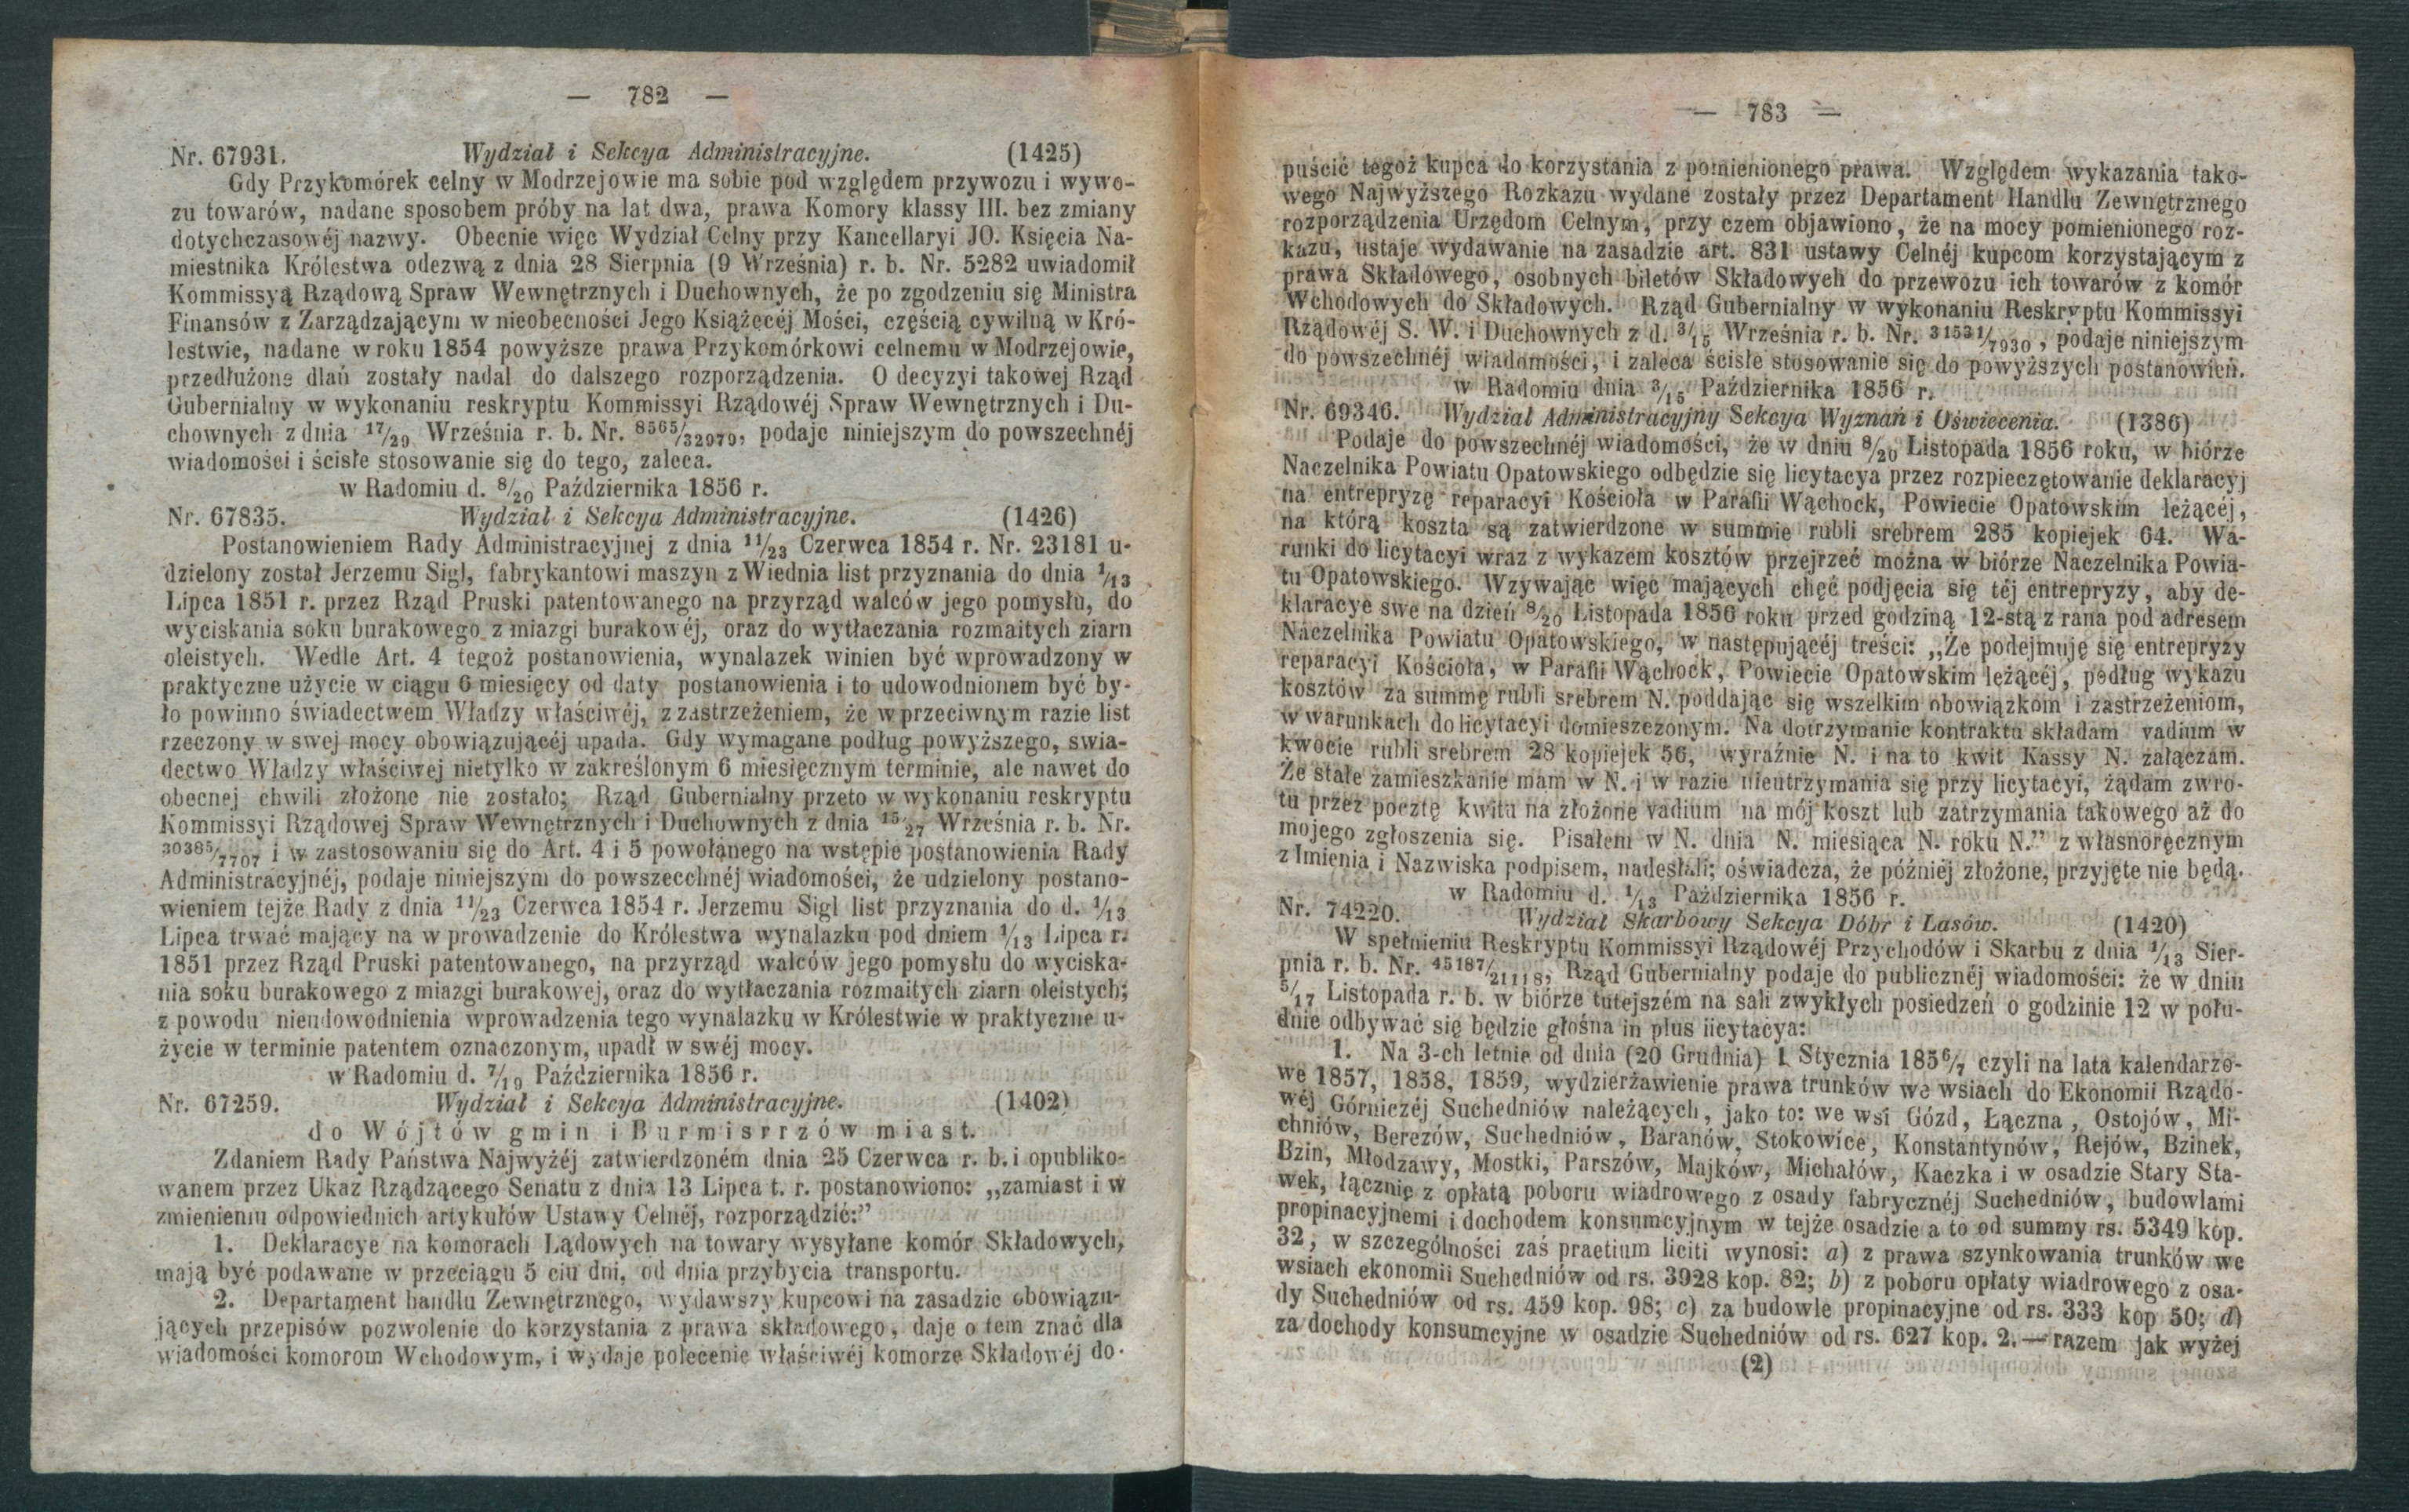 — 782 —
Nr. 67931. Wydział i Sekcya Administracyjne. (1425)
Gdy Przykomórek celny w Modrzejowie ma sobie pod względem przywozu i wywo-
zu towarów, nadane sposobem próby na lat dwa, prawa Komory klassy III. bez zmiany
dotychczasowéj nazwy. Obecnie więc Wydział Celny przy Kancellaryi JO. Księcia Na-
miestnika Królestwa odezwą z dnia 28 Sierpnia (9 Września) r. b. Nr. 5282 uwiadomił
Kommissyą Rządową Spraw Wewnętrznych i Duchownych, że po zgodzeniu się Ministra
Finansów z Zarządzającym w nieobecności Jego Książęcéj Mości, częścią cywilną w Kró-
lestwie, nadane w roku 1854 powyższe prawa Przykomórkowi celnemu w Modrzejowie,
przedłużone dlań zostały nadal do dalszego rozporządzenia. O decyzyi takowej Rząd
Gubernialny w wykonaniu reskryptu Kommissyi Rządowéj Spraw Wewnętrznych i Du-
chownych z dnia 17/29 Września r. b. Nr. 8565/32979, podaje niniejszym do powszechnéj
wiadomości i ścisłe stosowanie się do tego, zaleca.
w Radomiu d. 8/20 Października 1856 r.
Nr. 67835. Wydział i Sekcya Administracyjne. (1426)
Postanowieniem Rady Administracyjnej z dnia 11/23 Czerwca 1854 r. Nr. 23181 u-
dzielony został Jerzemu Sigl, fabrykantowi maszyn z Wiednia list przyznania do dnia 1/13
Lipca 1851 r. przez Rząd Pruski patentowanego na przyrząd walców jego pomysłu, do
wyciskania soku burakowego z miazgi burakowéj, oraz do wytłaczania rozmaitych ziarn
oleistych. Wedle Art. 4 tegoż postanowienia, wynalazek winien być wprowadzony w
praktyczne użycie w ciągu 6 miesięcy od daty postanowienia i to udowodnionem być by-
ło powinno świadectwem Władzy właściwéj, z zastrzeżeniem, że w przeciwnym razie list
rzeczony w swej mocy obowiązującéj upada. Gdy wymagane podług powyższego, swia-
dectwo Władzy właściwej nietylko w zakreślonym 6 miesięcznym terminie, ale nawet do
obecnej chwili złożone nie zostało; Rząd Gubernialny przeto w wykonaniu reskryptu
Kommissyi Rządowej Spraw Wewnętrznych i Duchownych z dnia 15/27 Września r. b. Nr.
30385/7707 i w zastosowaniu się do Art. 4 i 5 powołanego na wstępie postanowienia Rady
Administracyjnéj, podaje niniejszym do powszecchnéj wiadomości, że udzielony postano-
wieniem tejże Rady z dnia 11/23 Czerwca 1854 r. Jerzemu Sigl list przyznania do d. 1/13
Lipca trwać mający na wprowadzenie do Królestwa wynalazku pod dniem 1/13 Lipca r.
1851 przez Rząd Pruski patentowanego, na przyrząd walców jego pomysłu do wyciska-
nia soku burakowego z miazgi burakowej, oraz do wytłaczania rozmaitych ziarn oleistych;
z powodu nieudowodnienia wprowadzenia tego wynalazku w Królestwie w praktyczne u-
życie w terminie patentem oznaczonym, upadł w swéj mocy.
w Radomiu d. 7/19 Października 1856 r.
Nr. 67259. Wydział i Sekcya Administracyjne. (1402)
do Wójtów gmin i Burmisrrzów miast.
Zdaniem Rady Państwa Najwyżéj zatwierdzoném dnia 25 Czerwca r. b. i opubliko-
wanem przez Ukaz Rządzącego Senatu z dnia 13 Lipca t. r. postanowiono: „zamiast i w
zmienieniu odpowiednich artykułów Ustawy Celnéj, rozporządzić:”
1. Deklaracye na komorach Lądowych na towary wysyłane komór Składowych,
mają być podawane w przeciągu 5 ciu dni, od dnia przybycia transportu.
2. Departament handlu Zewnętrznego, wydawszy kupcowi na zasadzie obowiązu-
jących przepisów pozwolenie do korzystania z prawa składowego, daje o tem znać dla
wiadomości komorom Wchodowym, i wydaje polecenie właściwéj komorze Składowéj do-
— 783 —
puścić tegoż kupca do korzystania z pomienionego prawa. Względem wykazania tako-
wego Najwyższego Rozkazu wydane zostały przez Departament Handlu Zewnętrznego
rozporządzenia Urzędom Celnym, przy czem objawiono, że na mocy pomienionego roz-
kazu, ustaje wydawanie na zasadzie art. 831 ustawy Celnéj kupcom korzystającym z
prawa Składowego, osobnych biletów Składowych do przewozu ich towarów z komór
Wchodowych do Składowych. Rząd Gubernialny w wykonaniu Reskryptu Kommissyi
Rządowéj S. W. i Duchownych z d. 3/15 Września r. b. Nr. 31531/7930, podaje niniejszym
do powszechnéj wiadomości, i zaleca ścisłe stosowanie się do powyższych postanowień.
w Radomiu dnia 3/15 Października 1856 r.
Nr. 69346. Wydział Administracyjny Sekcya Wyznań i Oświecenia. (1386)
Podaje do powszechnéj wiadomości, że w dniu 8/20 Listopada 1856 roku, w biórze
Naczelnika Powiatu Opatowskiego odbędzie się licytacya przez rozpieczętowanie deklaracyj
na entrepryzę reparacyi Kościoła w Parafii Wąchock, Powiecie Opatowskim leżącéj,
na którą koszta są zatwierdzone w summie rubli srebrem 285 kopiejek 64. Wa-
runki do licytacyi wraz z wykazem kosztów przejrzeć można w biórze Naczelnika Powia-
tu Opatowskiego. Wzywając więc mających chęć podjęcia się téj entrepryzy, aby de-
klaracye swe na dzień 8/20 Listopada 1856 roku przed godziną 12-stą z rana pod adresem
Naczelnika Powiatu Opatowskiego, w następującéj treści: „Że podejmuję się entrepryzy
reparacyi Kościoła, w Parafii Wąchock, Powiecie Opatowskim leżącéj, podług wykazu
kosztów za summę rubli srebrem N. poddając się wszelkim obowiązkom i zastrzeżeniom,
w warunkach do licytacyi domieszczonym. Na dotrzymanie kontraktu składam vadium w
kwocie rubli srebrem 28 kopiejek 56, wyraźnie N. i na to kwit Kassy N. załączam.
Że stałe zamieszkanie mam w N. i w razie nieutrzymania się przy licytacyi, żądam zwro-
tu przez pocztę kwitu na złożone vadium na mój koszt lub zatrzymania takowego aż do
mojego zgłoszenia się. Pisałem w N. dnia N. miesiąca N. roku N.” z własnoręcznym
z Imienia i Nazwiska podpisem, nadesłali; oświadcza, że później złożone, przyjęte nie będą.
w Radomiu d. 1/13 Października 1856 r.
Nr. 74220. Wydział Skarbowy Sekcya Dóbr i Lasów. (1420)
W spełnieniu Reskryptu Kommissyi Rządowéj Przychodów i Skarbu z dnia 1/13 Sier-
pnia r. b. Nr. 45187/21118, Rząd Gubernialny podaje do publicznéj wiadomości: że w dniu
5/17 Listopada r. b. w biórze tutejszém na sali zwykłych posiedzeń o godzinie 12 w połu-
dnie odbywać się będzie głośna in plus iicytacya:
1. Na 3-ch letnie od dnia (20 Grudnia) 1 Stycznia 1856/7 czyli na lata kalendarzo-
we 1857, 1858, 1859, wydzierżawienie prawa trunków we wsiach do Ekonomii Rządo-
wéj Górniczéj Suchedniów należących, jako to: we wsi Gózd, Łączna, Ostojów, Mi-
chniów, Berezów, Suchedniów, Baranów, Stokowice, Konstantynów, Rejów, Bzinek,
Bzin, Młodzawy, Mostki, Parszów, Majków, Michałów, Kaczka i w osadzie Stary Sta-
wek, łącznie z opłatą poboru wiadrowego z osady fabrycznéj Suchedniów, budowlami
propinacyjnemi i dochodem konsumcyjnym w tejże osadzie a to od summy rs. 5349 kop.
32, w szczególności zaś praetium liciti wynosi: a) z prawa szynkowania trunków we
wsiach ekonomii Suchedniów od rs. 3928 kop. 82; b) z poboru opłaty wiadrowego z osa-
dy Suchedniów od rs. 459 kop. 98; c) za budowle propinacyjne od rs. 333 kop 50; d)
za dochody konsumcyjne w osadzie Suchedniów od rs. 627 kop. 2.—razem jak wyżej
(2)